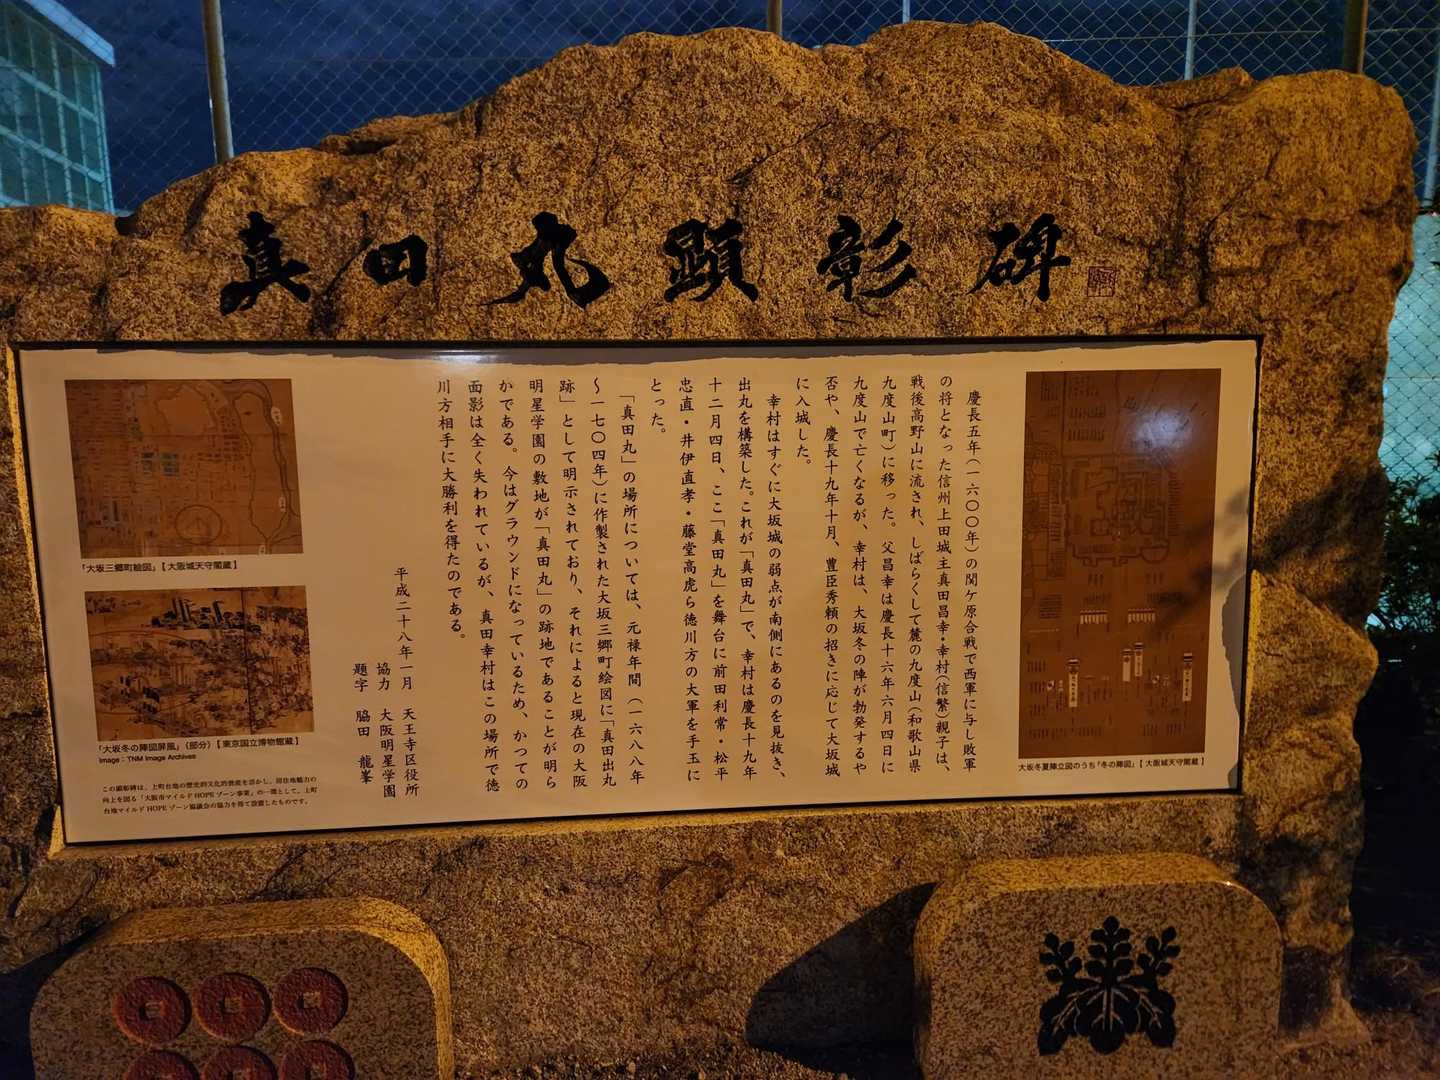 真田丸顕彰碑
慶長五年(一六〇〇年)の関ケ原合戦で西軍に与し敗軍
の将となった信州上田城主真田昌幸・幸村(信繁)親子は、
戦後高野山に流され、しばらくして麓の九度山(和歌山県
九度山町)に移った。父昌幸は慶長十六年六月四日に
九度山で亡くなるが、幸村は、大坂冬の陣が勃発するや
否や、慶長十九年十月、豊臣秀頼の招きに応じて大坂城
に入城した。
幸村はすぐに大坂城の弱点が南側にあるのを見抜き、
出丸を構築した。これが「真田丸」で、幸村は慶長十九年
十二月四日、ここ「真田丸」を舞台に前田利常・松平
忠直・井伊直孝・藤堂高虎ら徳川方の大軍を手玉に
とった。
「真田丸」の場所については、元禄年間(一六八八年
～一七〇四年)に作製された大坂三郷町絵図に「真田出丸
跡」として明示されており、それによると現在の大阪
明星学園の敷地が「真田丸」の跡地であることが明ら
かである。今はグラウンドになっているため、かつての
面影は全く失われているが、真田幸村はこの場所で徳
川方相手に大勝利を得たのである。
平成二十八年一月 天王寺区役所
協力 大阪明星学園
題字 脇田 龍峯
大坂冬夏陣立図のうち「冬の陣図」【大阪城天守閣蔵】
「大坂三郷町絵図」【大阪城天守閣蔵】
「大坂冬の陣図屏風」(部分)【東京国立博物館蔵】
Image：TNM Image Archives
この顕彰碑は、上町台地の歴史的文化的資産を活かし、居住地魅力の
向上を図る「大阪市マイルドHOPEゾーン事業」の一環として、上町
台地マイルドHOPEゾーン協議会の協力を得て設置したものです。